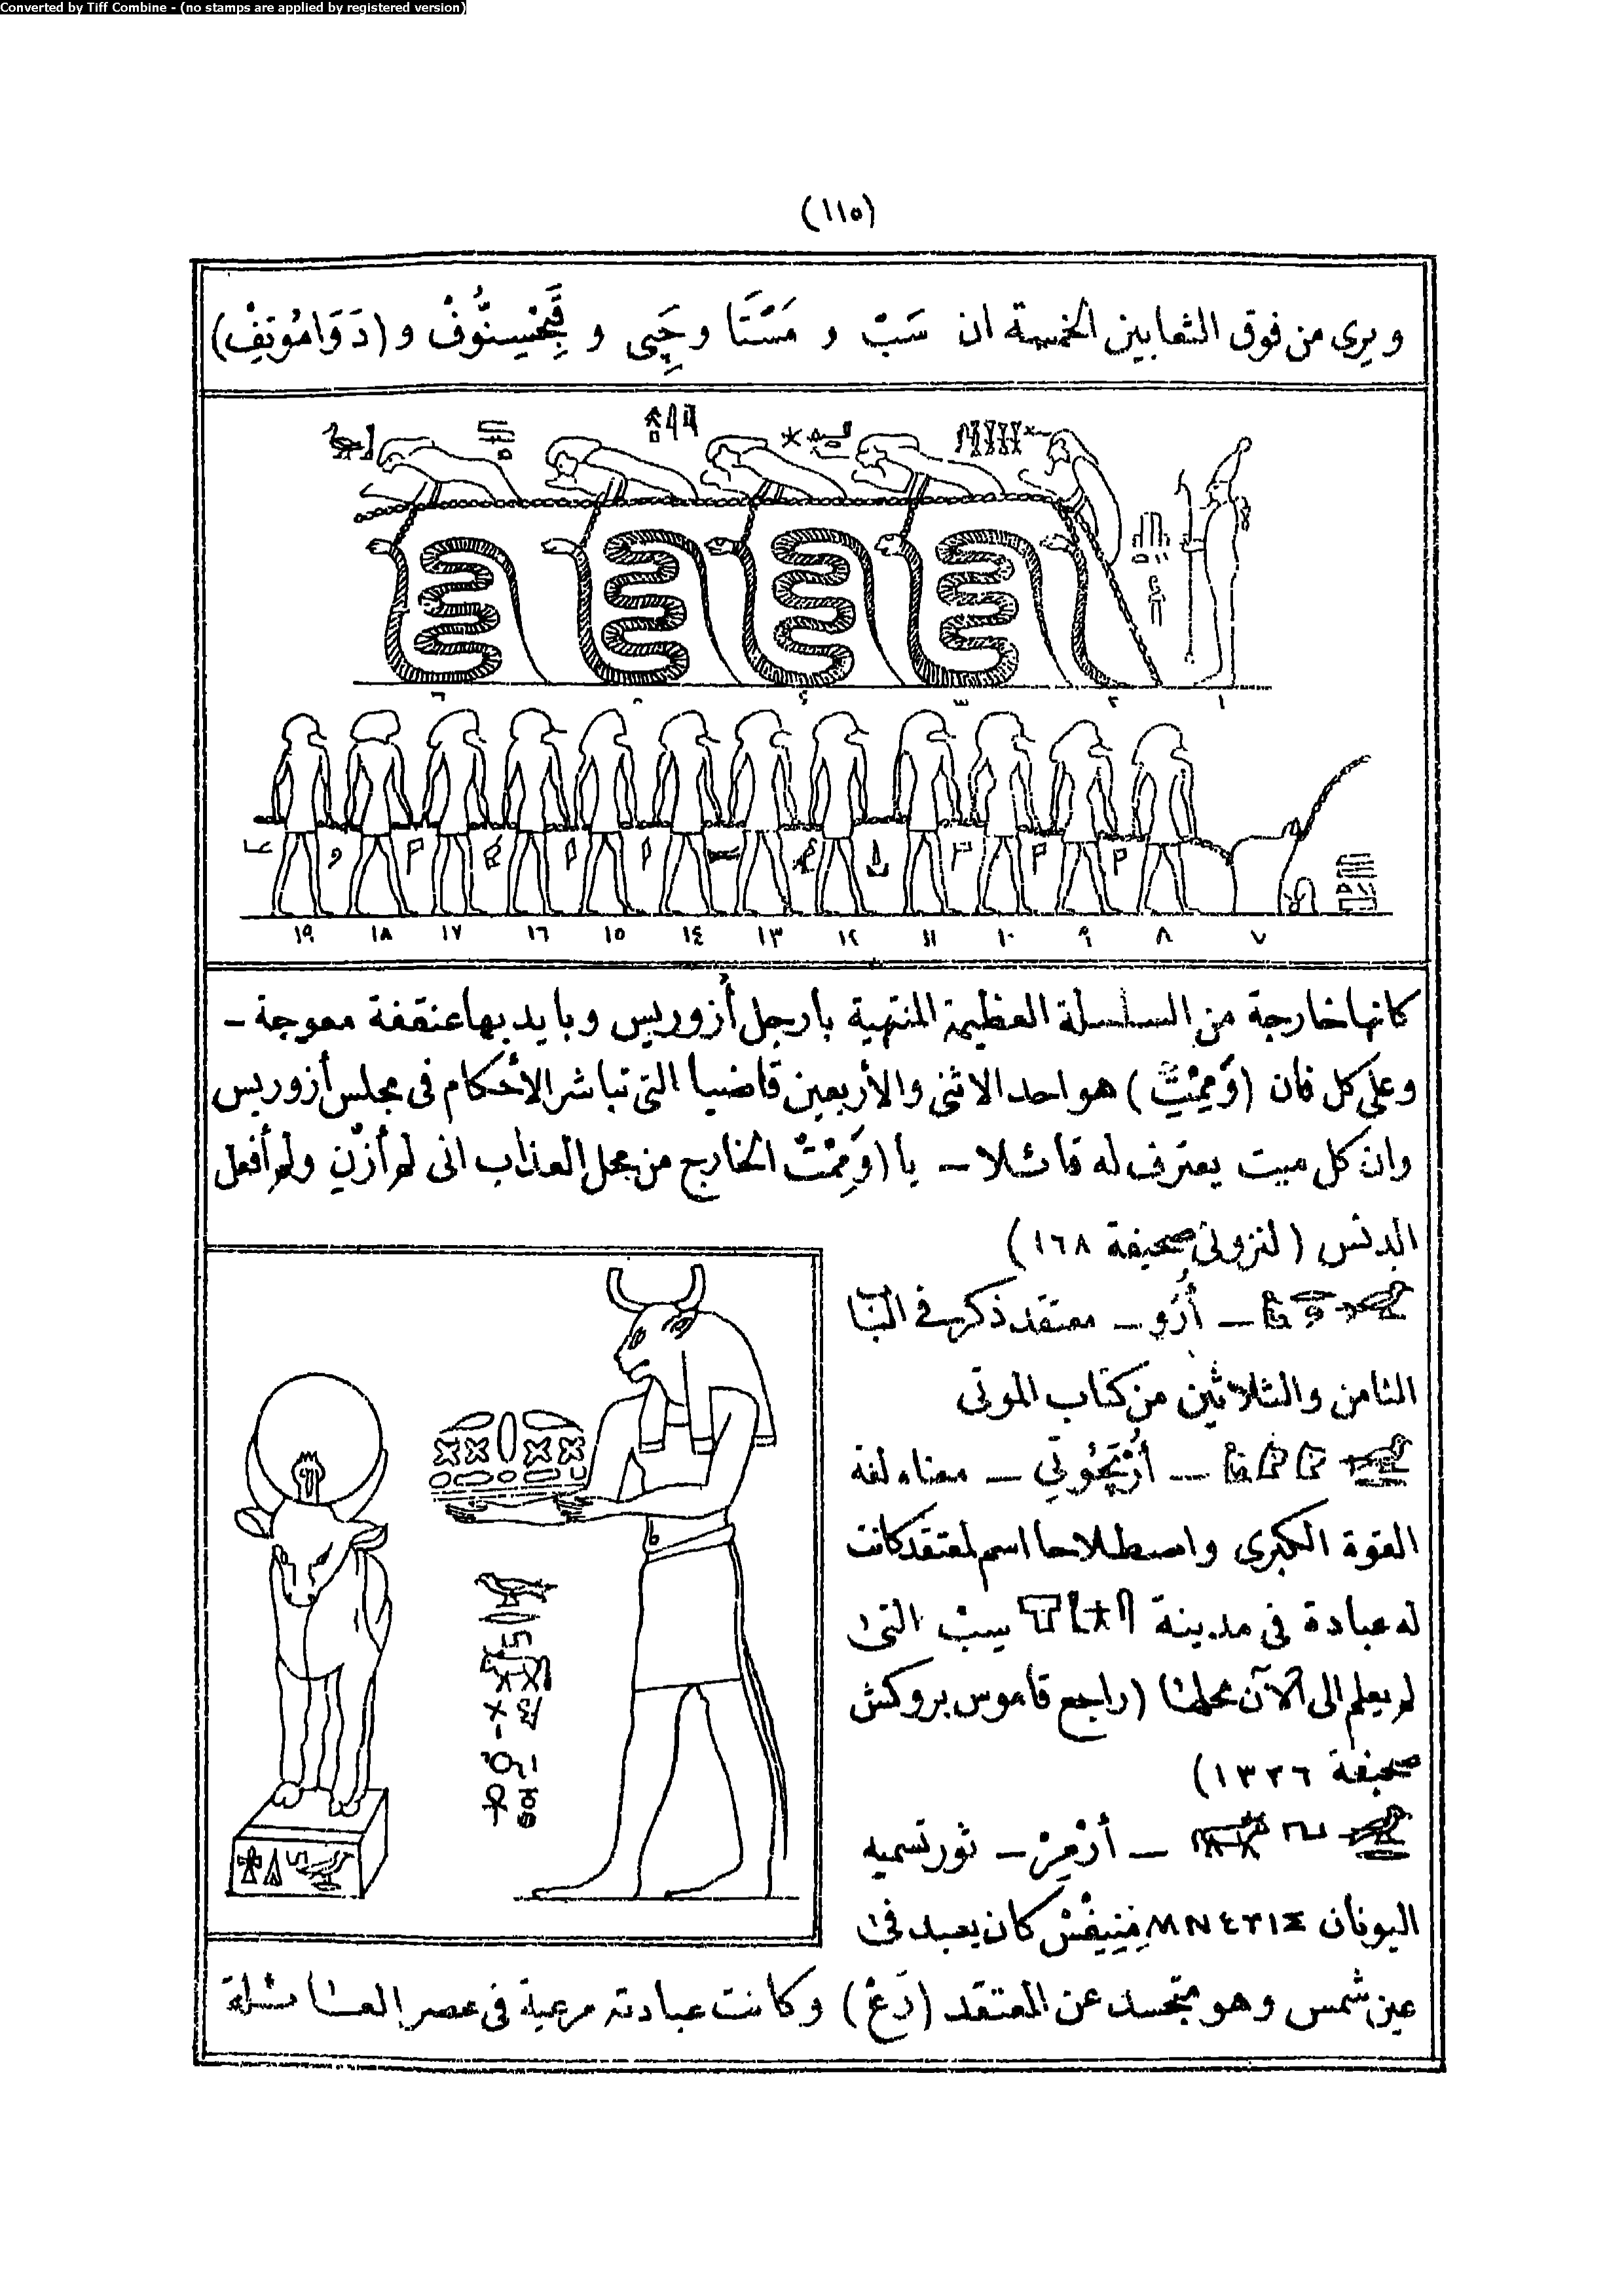 Converted by Tiff Combine - (no stamps are applied by registered version)
(١١٥)
ويرى من فوق الثعابين الخمسة ان سَبْ و مَسْتَا وحَپِى و قَبْحْسِنُّوفْ و (دَوَامُوتِفْ)
١ ٢ ٣ ٤ ٥ ٦
٧ ٨ ٩ ١٠ ١١ ١٢ ١٣ ١٤ ١٥ ١٦ ١٧ ١٨ ١٩
كانها خارجة من السلسلة العظيمة المنتهية بارجل أزوريس وبايديها عنقفة معوجة -
وعلى كل فان (وَمِمْتِى) هو احد الاثنى والأربعين قاضيا التى تباشر الأحكام فى مجلس أزوريس
وان كل ميت يعترف له قائلا - يا (وَمِمْتْ الخارج من محل العذاب انى لم أزنِ ولم أفعل
الدنس (لنزونى صحيفة ١٦٨)
- أُرُو - معتقد ذكر فى البا
الثامن والثلاثين من كتاب الموتى
- معناه لغة
القوة الكبرى واصطلاحا اسم لمعتقد كانت
له عبادة فى مدينة سِبْ التى
لم يعلم الى الآن محلها (راجع قاموس بروكش
صحيفة ١٣٢٦)
- أرْمِرْ - ثور تسميه
اليونان كان يعبد فى
عين شمس وهو متجسد عن المعتقد (رَعْ) وكانت عبادته مرعية فى عصر العائلة